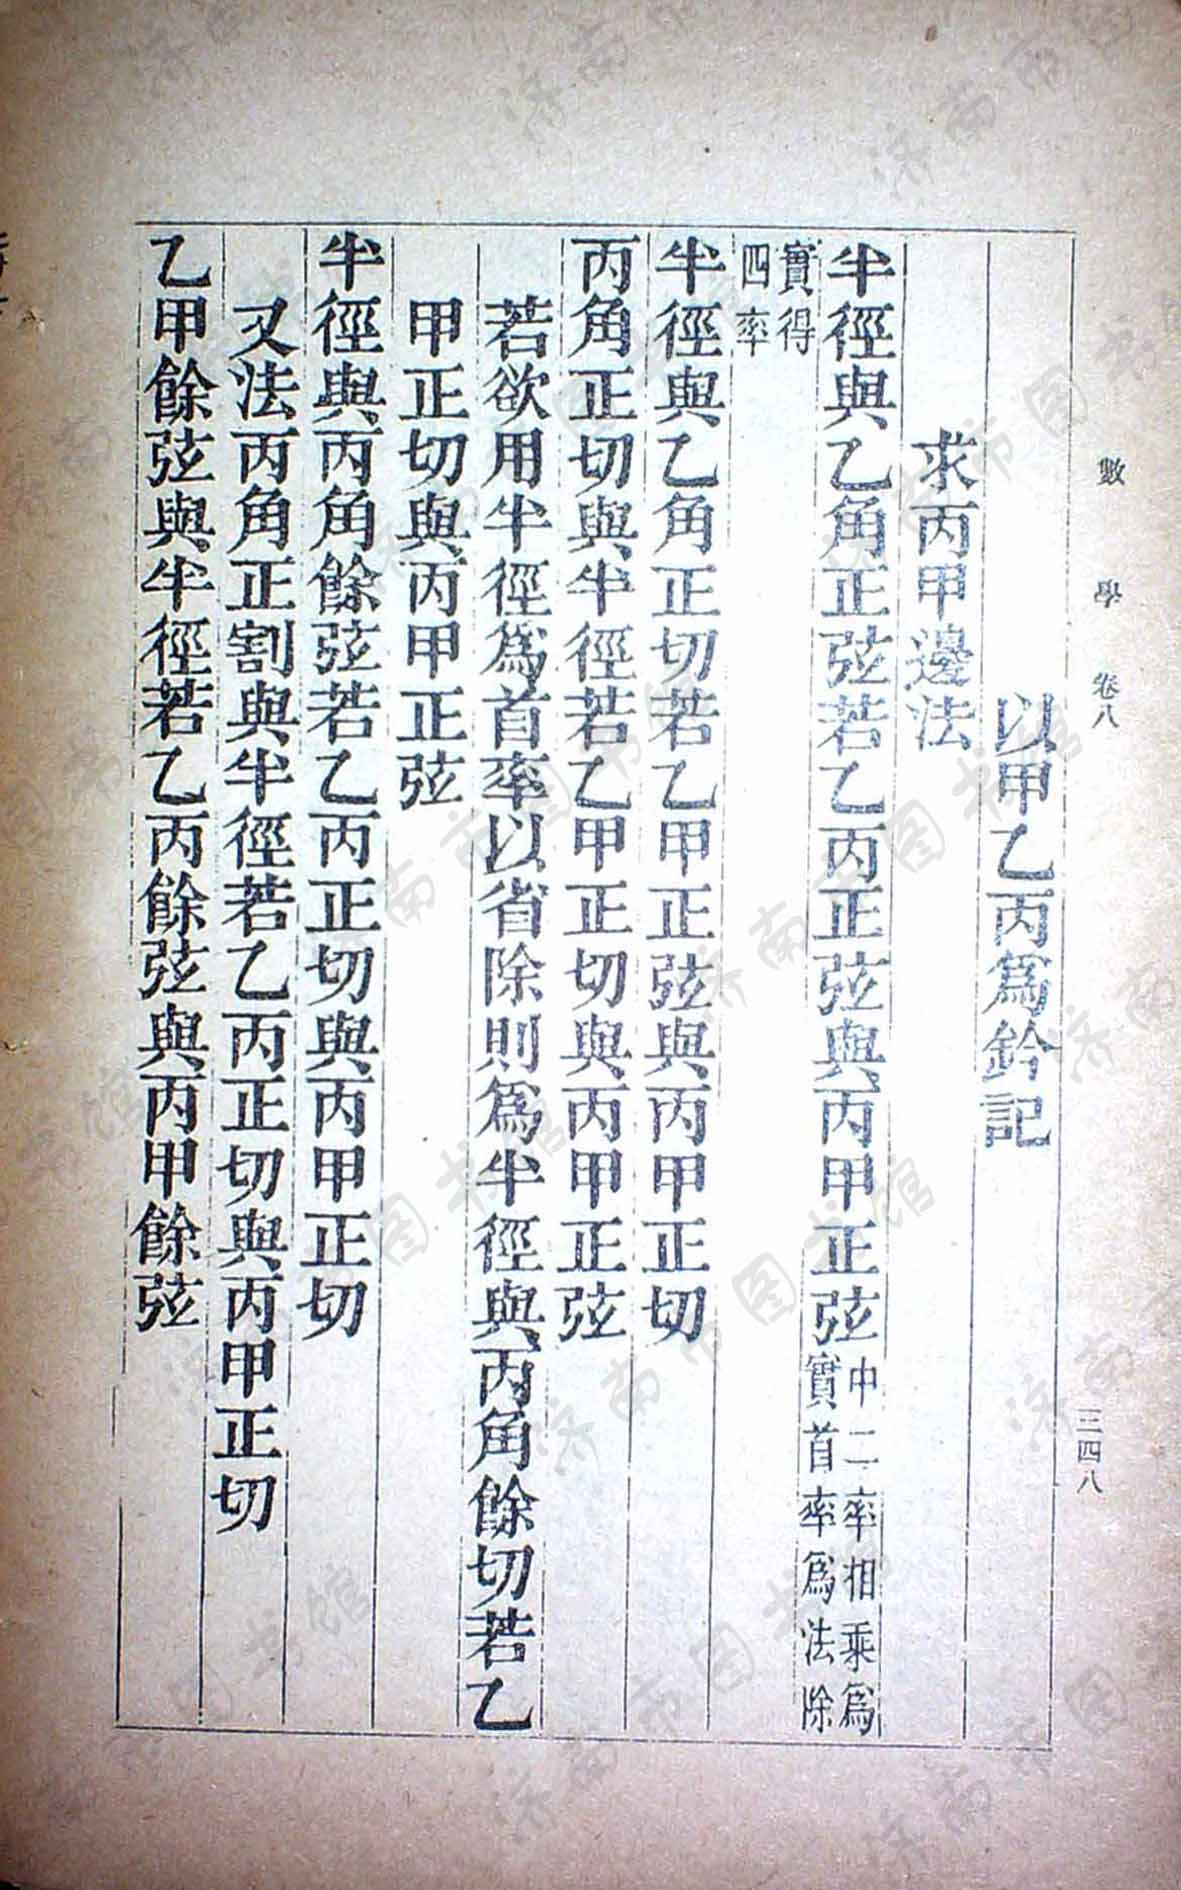 數學 卷八
三四八
以甲乙丙爲鈐記
求丙甲邊法
半徑與乙角正弦若乙丙正弦與丙甲正弦
中二率相乘爲
實首率爲法除
實得
四率
半徑與乙角正切若乙甲正弦與丙甲正切
丙角正切與半徑若乙甲正切與丙甲正弦
若欲用半徑爲首率以省除則爲半徑與丙角餘切若乙
甲正切與丙甲正弦
半徑與丙角餘弦若乙丙正切與丙甲正切
又法丙角正割與半徑若乙丙正切與丙甲正切
乙甲餘弦與半徑若乙丙餘弦與丙甲餘弦
济南市图书馆